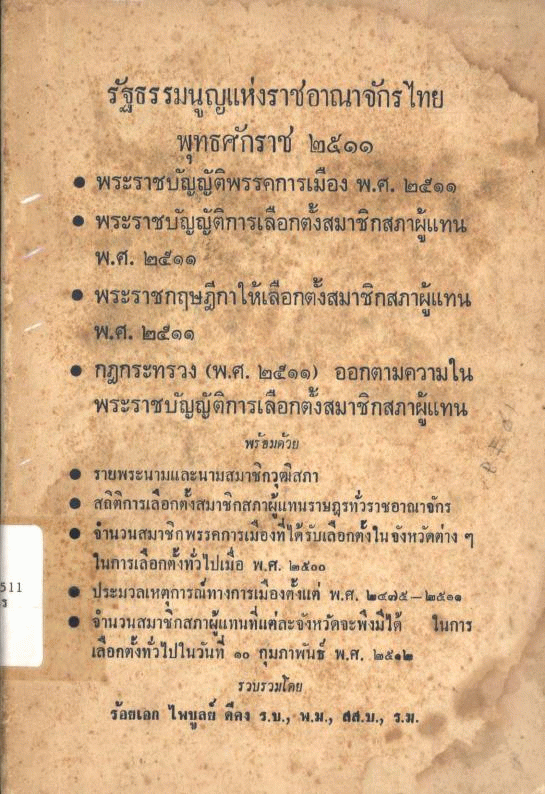 รัฐธรรมนูญแห่งราชอาณาจักรไทย
พุทธศักราช ๒๕๑๑
● พระราชบัญญัติพรรคการเมือง พ.ศ. ๒๕๑๑
● พระราชบัญญัติการเลือกตั้งสมาชิกสภาผู้แทน
พ.ศ. ๒๕๑๑
● พระราชกฤษฎีกาให้เลือกตั้งสมาชิกสภาผู้แทน
พ.ศ. ๒๕๑๑
● กฎกระทรวง (พ.ศ. ๒๕๑๑) ออกตามความใน
พระราชบัญญัติการเลือกตั้งสมาชิกสภาผู้แทน
พร้อมด้วย
● รายพระนามและนามสมาชิกวุฒิสภา
● สถิติการเลือกตั้งสมาชิกสภาผู้แทนราษฎรทั่วราชอาณาจักร
● จำนวนสมาชิกพรรคการเมืองที่ได้รับเลือกตั้งในจังหวัดต่าง ๆ
ในการเลือกตั้งทั่วไปเมื่อ พ.ศ. ๒๕๐๐
511
ร
● ประมวลเหตุการณ์ทางการเมืองตั้งแต่ พ.ศ. ๒๔๗๕–๒๕๑๑
● จำนวนสมาชิกสภาผู้แทนที่แต่ละจังหวัดจะพึงมีได้ ในการ
เลือกตั้งทั่วไปในวันที่ ๑๐ กุมภาพันธ์ พ.ศ. ๒๕๑๒
รวบรวมโดย
ร้อยเอก ไพบูลย์ ดีคง ร.บ., พ.ม., สส.บ., ร.ม.